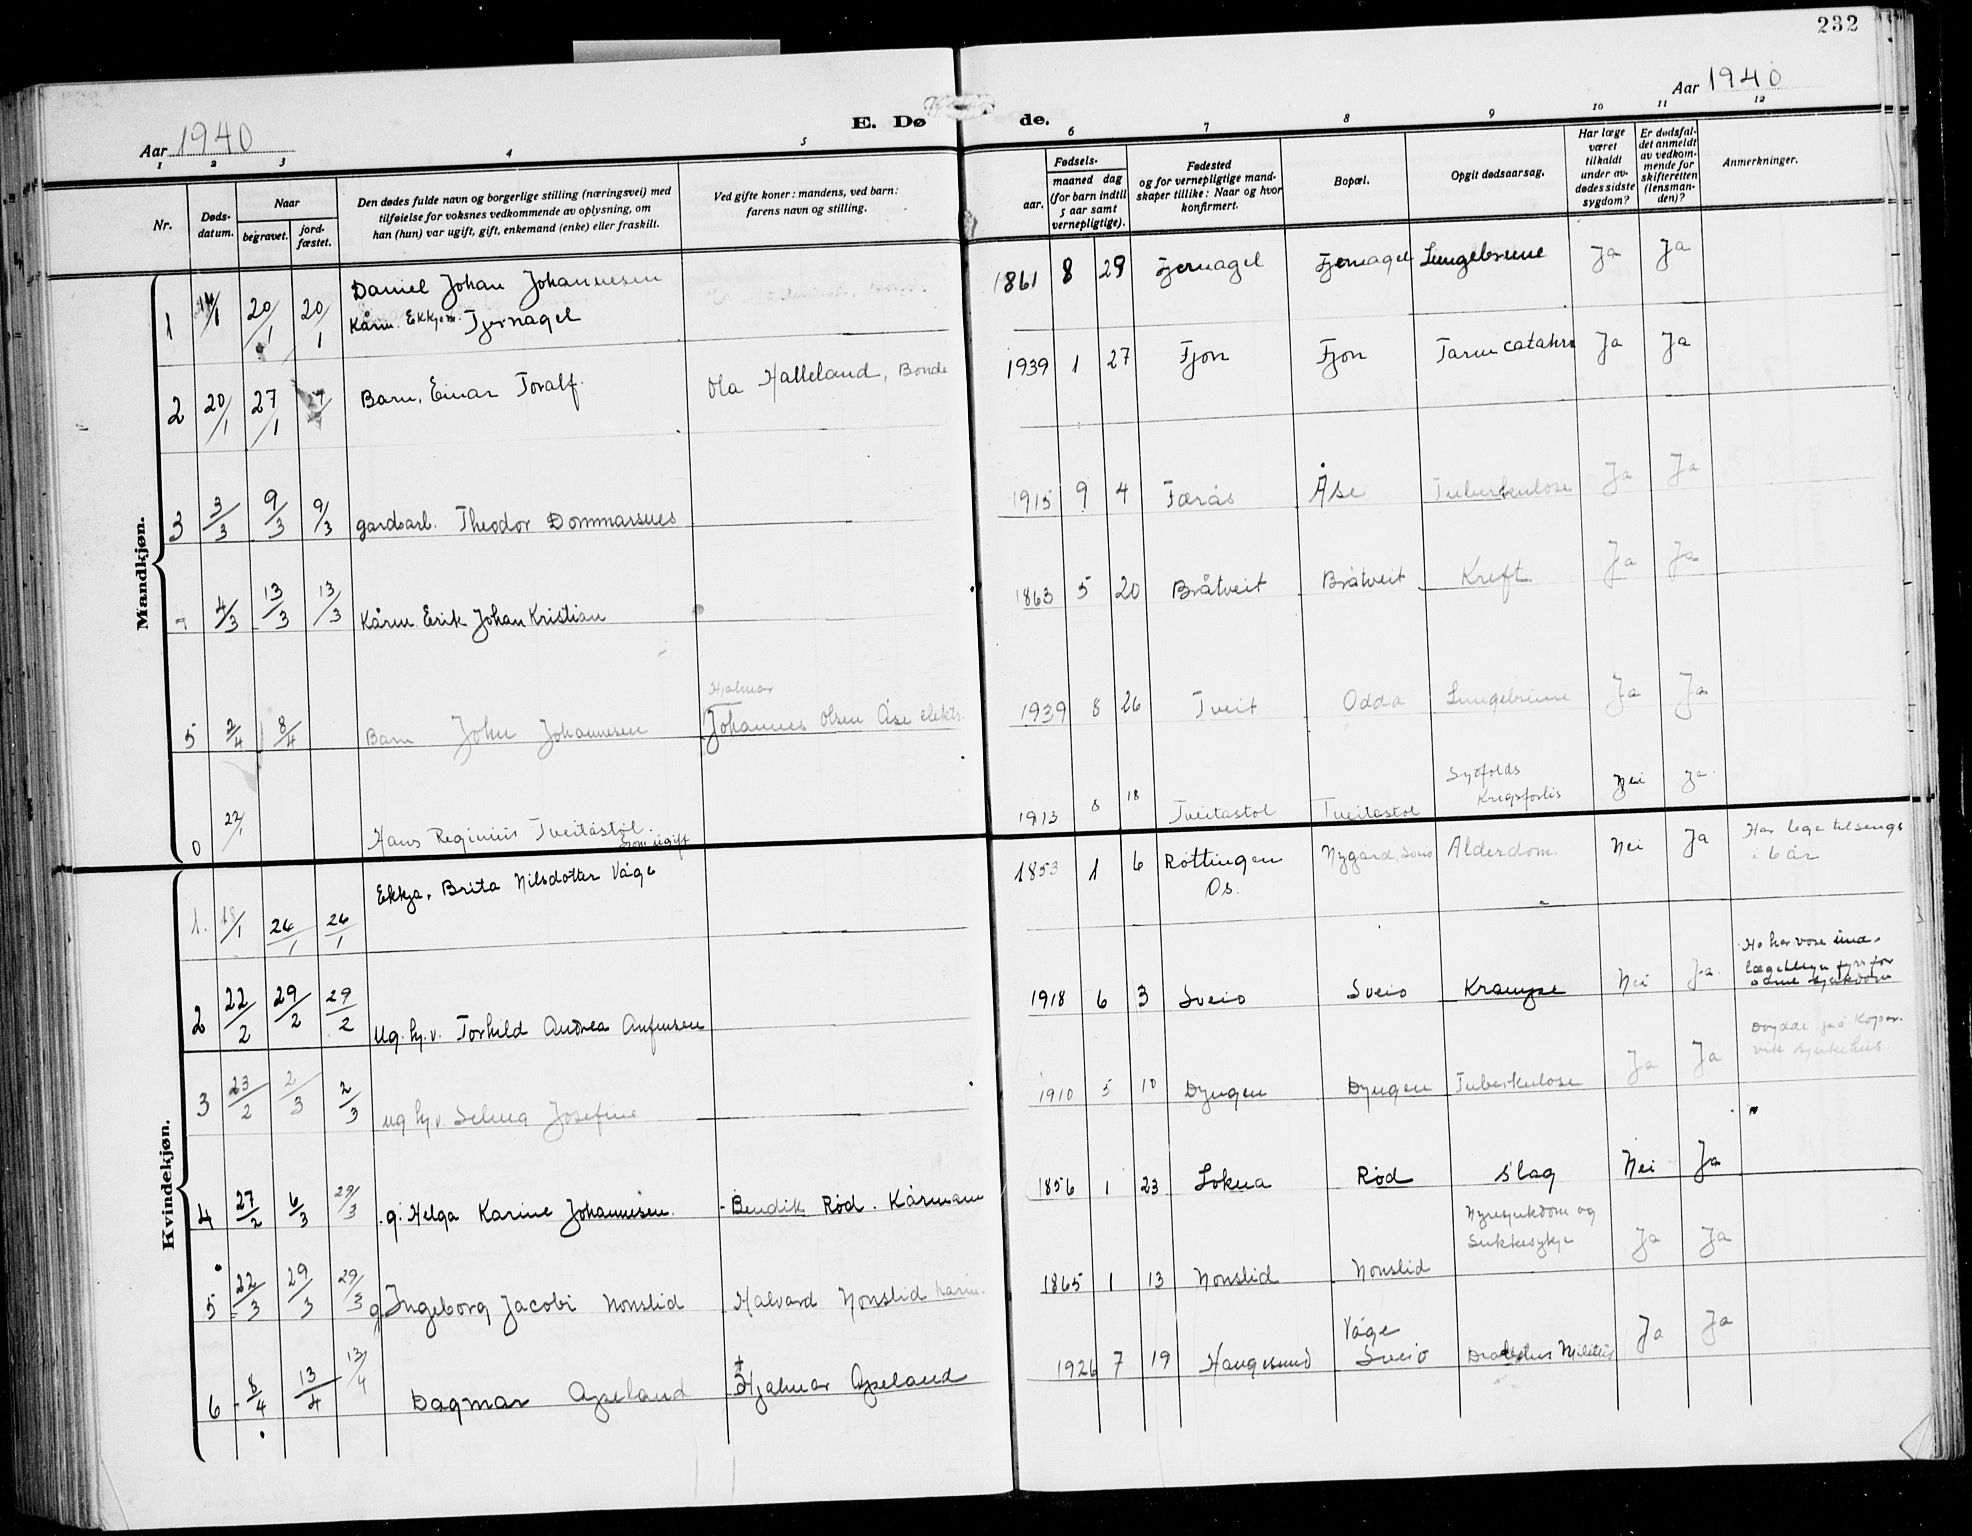 232
Aar 1940
E. Dø
de.
Aar 1940
1 2 3 4 5 6 7 8 9 10 11 12
Nr.
Døds-
datum.
Naar
begravet.
jord-
fæstet.
Den dødes fulde navn og borgerlige stilling (næringsvei) med
tilføielse for voksnes vedkommende av oplysning, om
han (hun) var ugift, gift, enkemand (enke) eller fraskilt.
Ved gifte koner: mandens, ved barn:
farens navn og stilling.
aar.
Fødsels-
maaned dag
(for barn indtil
5 aar samt
vernepligtige).
Fødested
og for vernepligtige mand-
skaper tillike: Naar og hvor
konfirmert.
Bopæl.
Opgit dødsaarsag.
Har læge
været
tilkaldt
under av-
dødes sidste
sygdom?
Er dødsfal-
det anmeldt
av vedkom-
mende for
skifteretten
(lensman-
den)?
Anmerkninger.
Mandkjøn.
Daniel Johan Johannesen
1 20/1 20/1 Kårm. Ekkjem. Tjernagel 1861 8 29 Tjernagel Tjernagel Lungebrune Ja Ja
2 20/1 27/1 Barn, Einar Toralf. Ola Halleland, Bonde 1939 1 27 Fjon Fjon Tarmcatahr Ja Ja
3 3/3 9/3 9/3 gardsarb. Theodor Dommarsnes 1915 9 4 Færås Åse Tuberkulose Ja Ja
4/3 13/3 13/3 Kårm Erik Johan Kristian 1863 5 20 Bråtveit Bråtveit Kreft Ja Ja
Hjalmar
5 2/4 8/4 Barn John Johannesen Johannes Olsen Åse elektr. 1939 8 26 Tveit Odda Lungebrune Ja Ja
Krigsforlis
22/1 Hans Reginius Tveitastøl. 1913 8 18 Tveitastøl Tveitastøl Nei Ja
ugift
Kvindekjøn.
1. 18/1 26/1 26/1 Ekkja, Brita Nilsdotter Våge 1853 1 6 Røttingen Nygård, Sveio Alderdom. Nei Ja Har lege tilsengs
Os.
i 6 år
2 22/2 29/2 29/2 Ug. hj. v. Torhild Andrea Anfinsen 1918 6 3 Sveio Sveio Krampe Nei Ja Ho har vore
3 23/2 2/3 2/3 ug hj v. Selma Josefine 1910 5 10 Dyngen Dyngen Tuberkulose Ja Ja Døydde på Koper-
vik sjukehus.
4 27/2 6/3 29/3 g. Helga Karine Johannesen. Bendik Rød. Kårmann 1856 1 23 Lokna Rød Slag Nei Ja
Nyresjukdom og
Sukkersykje
5 22/3 29/3 29/3 g. Ingeborg Jacobi Nonslid Halvard Nonslid kårm. 1865 1 13 Nonslid Nonslid Ja Ja
Våge
6 8/4 13/4 13/4 Dagmar Apeland Hjalmar Apeland 1926 7 19 Haugesund Sveio Ja Ja